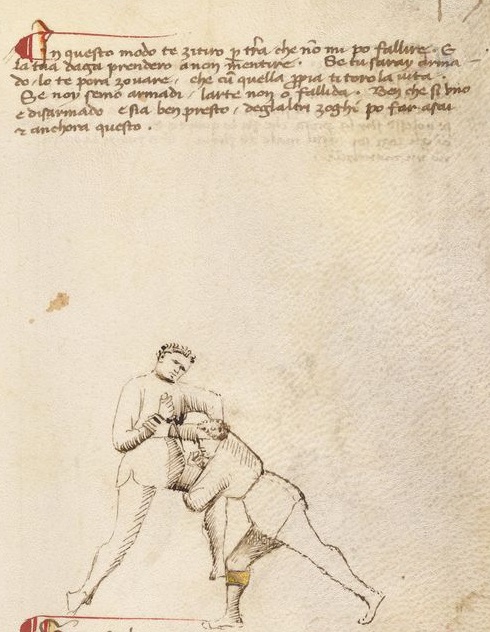 In questo modo te zitirò p tr̃a che nõ mi po fallire. E
la tua daga prenderò a non mentire. Se tu sarai arma
do, lo te porà zovare, che cũ quella ppia ti torò la vita.
Se noy semo armadi, larte non ò fallida. Ben che si uno
è disarmado e sia ben presto, deglaltri zoghi pò far asai
⁊ anchora questo.